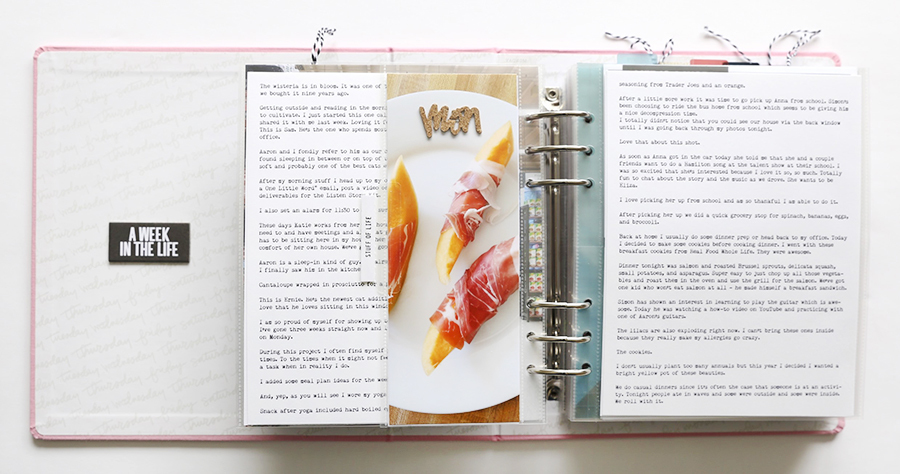 A WEEK
IN THE LIFE
The wisteria is in bloom. It was one of
we bought it nine years ago.
Getting outside and reading in the morn
to cultivate. I just started this one cal
shared it with me last week. Loving it f
This is Sam. He's the one who spends most
office.
Aaron and I fondly refer to him as our s
found sleeping in between or on top of
soft and probably one of the best cats
After my morning stuff I head up to my
a One Little Word® email, post a video
deliverables for the Listen Story
I also set an alarm for 11:50 to
These days Katie works from her
need to and have meetings and
has to be sitting here in my
comfort of her own house. We've
Aaron is a sleep-in kind of guy.
I finally saw him in the kitchen
Cantaloupe wrapped in prosciutto fo
This is Ernie. He's the newest cat addit
love that he loves sitting in this windo
I am so proud of myself for showing up
I've gone three weeks straight now and
on Monday.
During this project I often find myself
times. To the times when it might not fe
a task when in reality I do.
I added some meal plan ideas for the wee
And, yep, as you will see I wore my yoga
Snack after yoga included hard boiled
STUFF OF LIFE
mom
seasoning from Trader Joes and an orange.
After a little more work it was time to go pick up Anna from school. Simon's
been choosing to ride the bus home from school which seems to be giving him
a nice decompression time.
I totally didn't notice that you could see our house via the back window
until I was going back through my photos tonight.
Love that about this shot.
As soon as Anna got in the car today she told me that she and a couple
friends want to do a Hamilton song at the talent show at their school. I
was so excited that she's interested because I love it so, so much. Totally
fun to chat about the story and the music as we drove. She wants to be
Eliza.
I love picking her up from school and am so thankful I am able to do it.
After picking her up we did a quick grocery stop for spinach, bananas, eggs,
and broccoli.
Back at home I usually do some dinner prep or head back to my office. Today
I decided to make some cookies before cooking dinner. I went with these
breakfast cookies from Real Food Whole Life. They were awesome.
Dinner tonight was salmon and roasted Brussel sprouts, delicata squash,
small potatoes, and asparagus. Super easy to just chop up all those vegeta-
bles and roast them in the oven and use the grill for the salmon. We've got
one kid who won't eat salmon at all - he made himself a breakfast sandwich.
Simon has shown an interest in learning to play the guitar which is awe-
some. Today he was watching a how-to video on YouTube and practicing with
one of Aaron's guitars.
The lilacs are also exploding right now. I can't bring these ones inside
because they really make my allergies go crazy.
The cookies.
I don't usually plant too many annuals but this year I decided I wanted a
bright yellow pot of these beauties.
We do casual dinners since it's often the case that someone is at an activi-
ty. Tonight people ate in waves and some were outside and some were inside.
We roll with it.